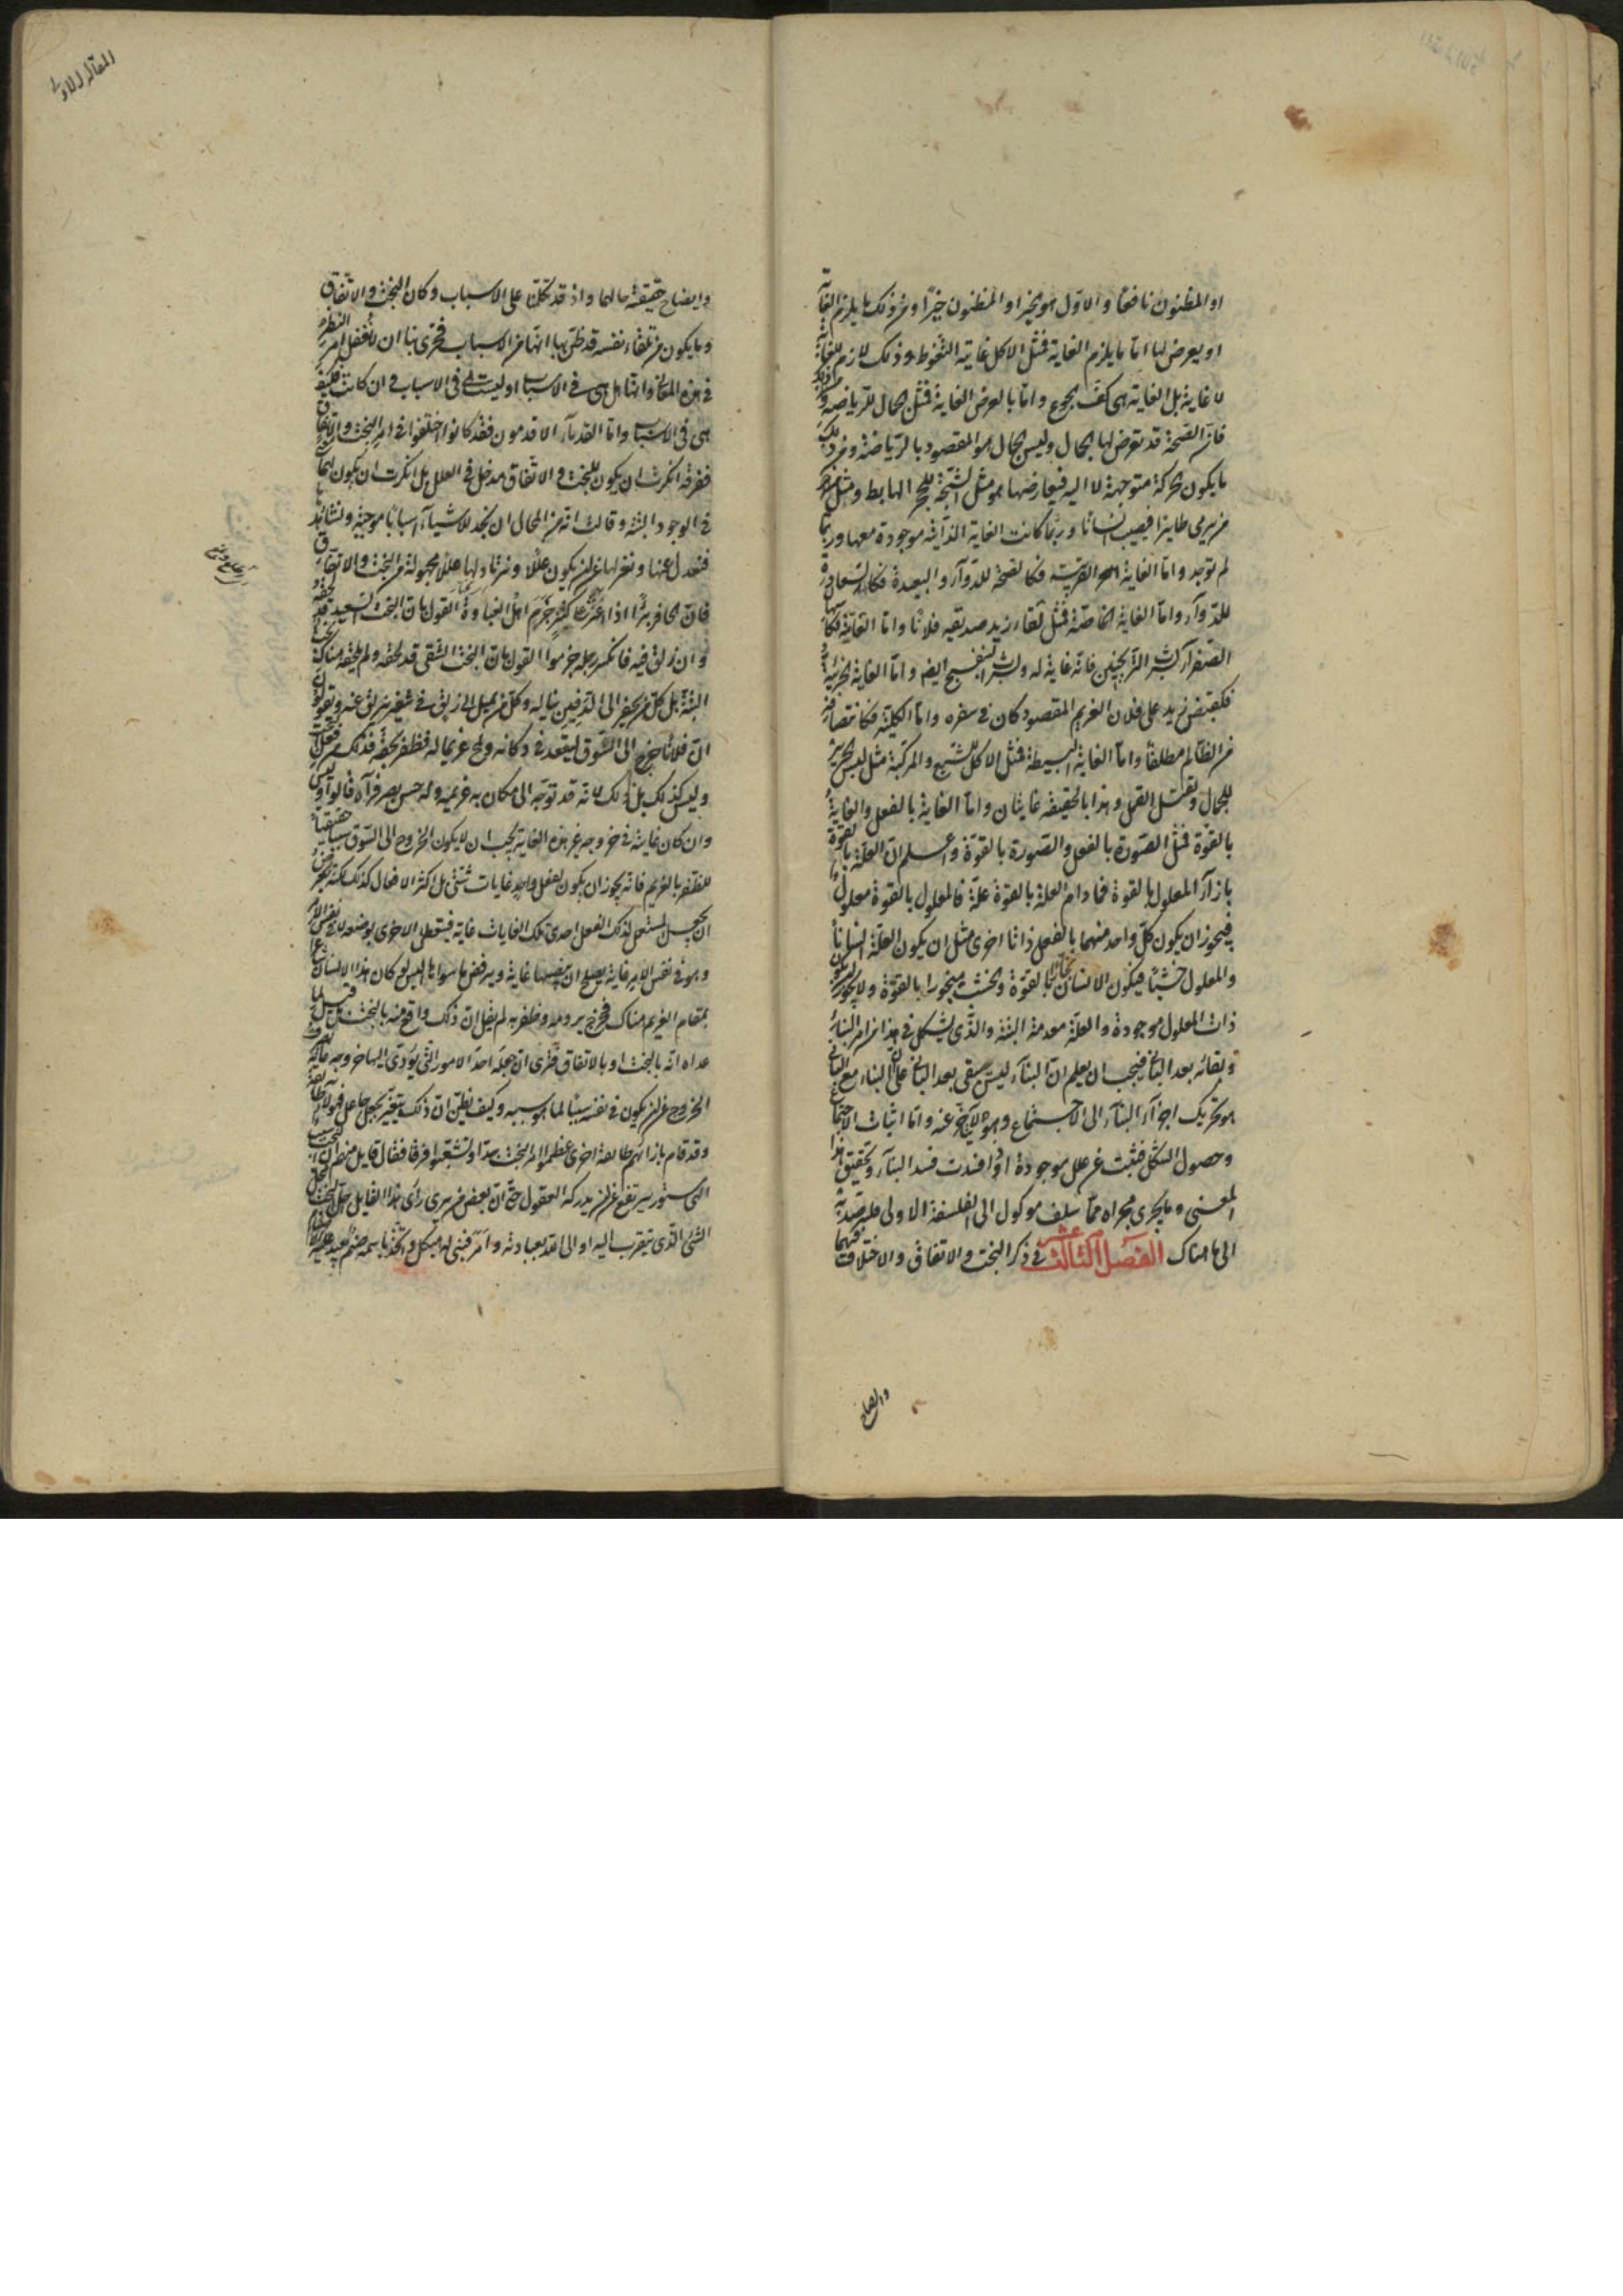 او المظنون نافعا والاول هو الخير او المظنون خيرا ومن ذلك ما يلزم الغاية
او يعرض لها اما ما يلزم الغاية فمثل الاكل غايته التغوط وذلك لازم للغاية
لا غاية بل الغاية هى كف الجوع واما ما يعرض الغاية فمثل الجمال للرياضة
فان الصحة قد يعرض لها الجمال وليس الجمال هو المقصود بالرياضة ومن ذلك
ما يكون الحركة متوجهة لا اليه فيعارضها هو مثل الشجة للحجر الهابط ومثل
من يرمى طايرا فيصيب انسانا وربما كانت الغاية الذاتية موجودة معها وربما
لم توجد واما الغاية القريبة فكالصحة للدوآء والبعيدة فكالسعادة
للدوآء واما الغاية الخاصة فمثل لقاء زيد صديقه فلانا واما العامة فكاسهال
الصفرآء لشرب الترنجبين فانه غاية له ولشرب البنفسج ايضا واما الغاية الجزئية
فكقبض زيد على فلان الغريم المقصود كان فى سفره واما الكلية فكانتصافه
من الظالم مطلقا واما الغاية البسيطة فمثل الاكل للشبع والمركبة مثل لبس الحرير
للجمال ولقتل القمل وهذا بالحقيقة غايتان واما الغاية بالفعل والغاية
بالقوة فمثل الصورة بالفعل والصورة بالقوة واعلم ان العلة بالقوة
بازآء المعلول بالقوة فما دام العلة بالقوة علة فالمعلول بالقوة معلول
فيجوز ان يكون كل واحد منهما بالفعل ذاتا اخرى مثل ان يكون العلة انسانا
والمعلول خشبا فيكون الانسان نجارا بالقوة والخشب منجورا بالقوة ولا يجوز ان يكون
ذات المعلول موجودة والعلة معدمة البتة والذى يشكل فى هذا من امر البناء
وبقائه بعد البانى فيجب ان يعلم ان البنآء ليس يبقى بعد البانى على ان البناء مع البانى
هو تحريك اجزآء البنآء الى الاجتماع وهو لا يتاخر عنه واما اثبات الاجتماع
وحصول الشكل فيثبت عن علل موجودة اذا فسدت فسد البنآء وتحقيق هذا
المعنى وما يجرى مجراه مما سلف موكول الى الفلسفة الاولى فليرصد به
الى ما هناك الفصل الثالث عشر فى ذكر البخت والاتفاق والاختلاف فيهما
وايضاح
المقالة الاولى
وايضاح حقيقة حالهما واذ قد تكلمنا على الاسباب وكان البخت والاتفاق
وما يكون من تلقاء نفسه قد ظن بها انها من الاسباب فحرى بنا ان لا نغفل امر النظر
فى هذه المعانى وانها هل هى فى الاسباب او ليست فى الاسباب وان كانت فكيف
هى فى الاسباب واما القدمآء الاقدمون فقد كانوا اختلفوا فى امر البخت والاتفاق
ففرقة انكرت ان يكون للبخت والاتفاق مدخل فى العلل بل انكرت ان يكون لهما
فى الوجود البتة وقالت انه من المحال ان نجد للاشيآء اسبابا موجبة ونشاهدها
فنعدل عنها ونعزلها عن ان يكون عللا ونرتاد لها عللا مجهولة من البخت والاتفاق
فان الحافر بئرا اذا عثر على كنز جزم اهل الغباوة القول بان البخت السعيد قد لحقه
وان زلق فيه فانكسر رجله جزموا القول بان البخت الشقى قد لحقه ولم يلحقه هناك بخت
البتة بل كل من يحفر الى الدفين يناله وكل من يميل الى زلق فى شفير يزلق عنه ويقولون
ان فلانا خرج الى السوق ليقعد فى دكانه ولمح غريما له فظفر بحقه فذلك من فعل البخت
وليس كذلك بل ذلك لانه قد توجه الى مكان به غريمه وله حس بصر فرآه قالوا وليس
وان كان غايته فى خروجه غير هذه الغاية يجب ان لا يكون الخروج الى السوق سببا حقيقيا
للظفر بالغريم فانه يجوز ان يكون لفعل واحد غايات شتى بل اكثر الافعال كذلك لكنه يعرض
ان يجعل المستعمل لذلك الفعل احدى تلك الغايات غاية فيتعطل الاخرى بوضعه لا فى نفس الامر
وهو فى نفس الامر غاية يصلح ان ينصبها غاية ويرفض ما سواها اليس لو كان هذا الانسان شاعرا
بمقام الغريم هناك فخرج يرومه وظفر به لم يقل ان ذلك واقع منه بالبخت بل قيل لما
عداه انه بالبخت او بالاتفاق فترى ان جعله احد الامور التى يؤدى اليها خروجه غاية
الخروج عن ان يكون فى نفسه سببا لما هو سببه وكيف نظن ان ذلك يتغير بجعل جاعل فهولآء طائفة
وقد قام بازائهم طائفة اخرى عظموا امر البخت جدا وتشعبوا فرقا فقال قايل منهم ان البخت سبب
الهى مستور يرتفع عن ان يدركه العقول حتى ان بعض من يرى رأى هذا القايل احل البخت محل
الشئ الذى يتقرب اليه او الى الله بعبادته وامر فبنى له هيكل واتخذ باسمه صنم يعبد